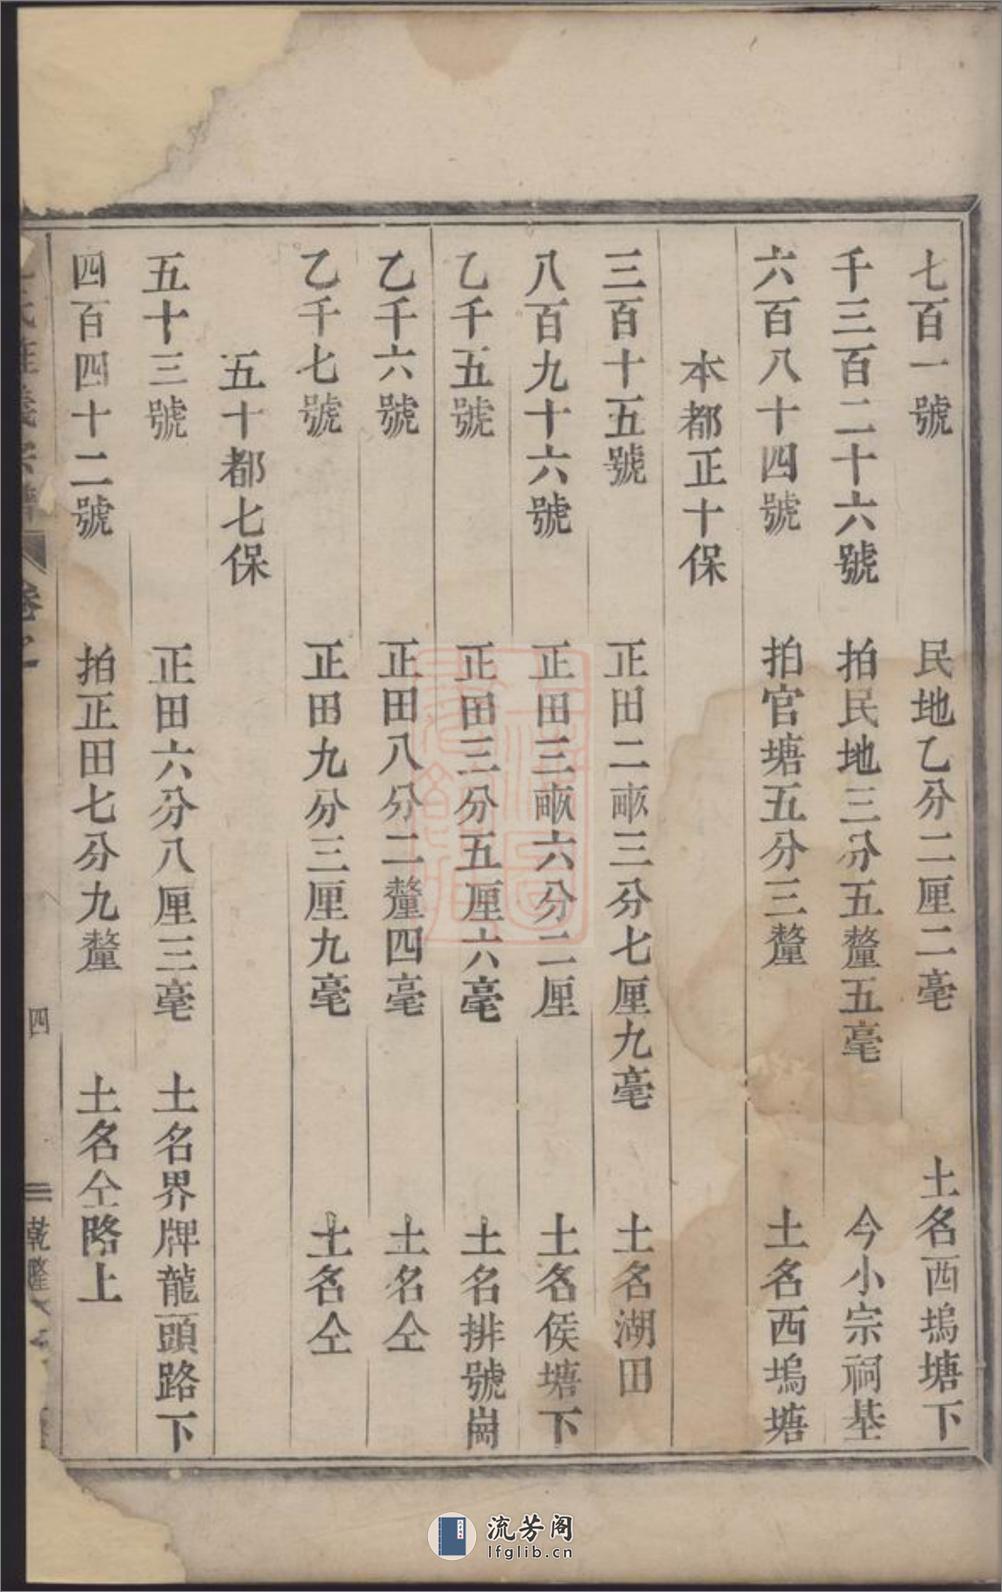 七百一號　民地乙分二厘二毫　土名西塢塘下
千三百二十六號　拍民地三分五釐五毫　今小宗祠基
六百八十四號　拍官塘五分三釐　土名西塢塘
本都正十保
三百十五號　正田二畝三分七厘九毫　土名湖田
八百九十六號　正田三畝六分二厘　土名侯塘下
乙千五號　正田三分五厘六毫　土名排號崗
乙千六號　正田八分二釐四毫　土名仝
乙千七號　正田九分三厘九毫　土名仝
五十都七保
五十三號　正田六分八厘三毫　土名界牌龍頭路下
四百四十二號　拍正田七分九釐　土名仝路上
卷之
四
乾隆
流芳阁
lfglib.cn